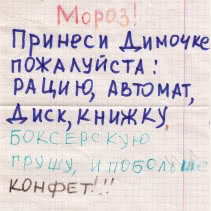 Мороз!
Принеси Димочке
пожалуйста:
рацию, автомат,
диск, книжку,
боксерскую
грушу, и побольше
конфет!!!